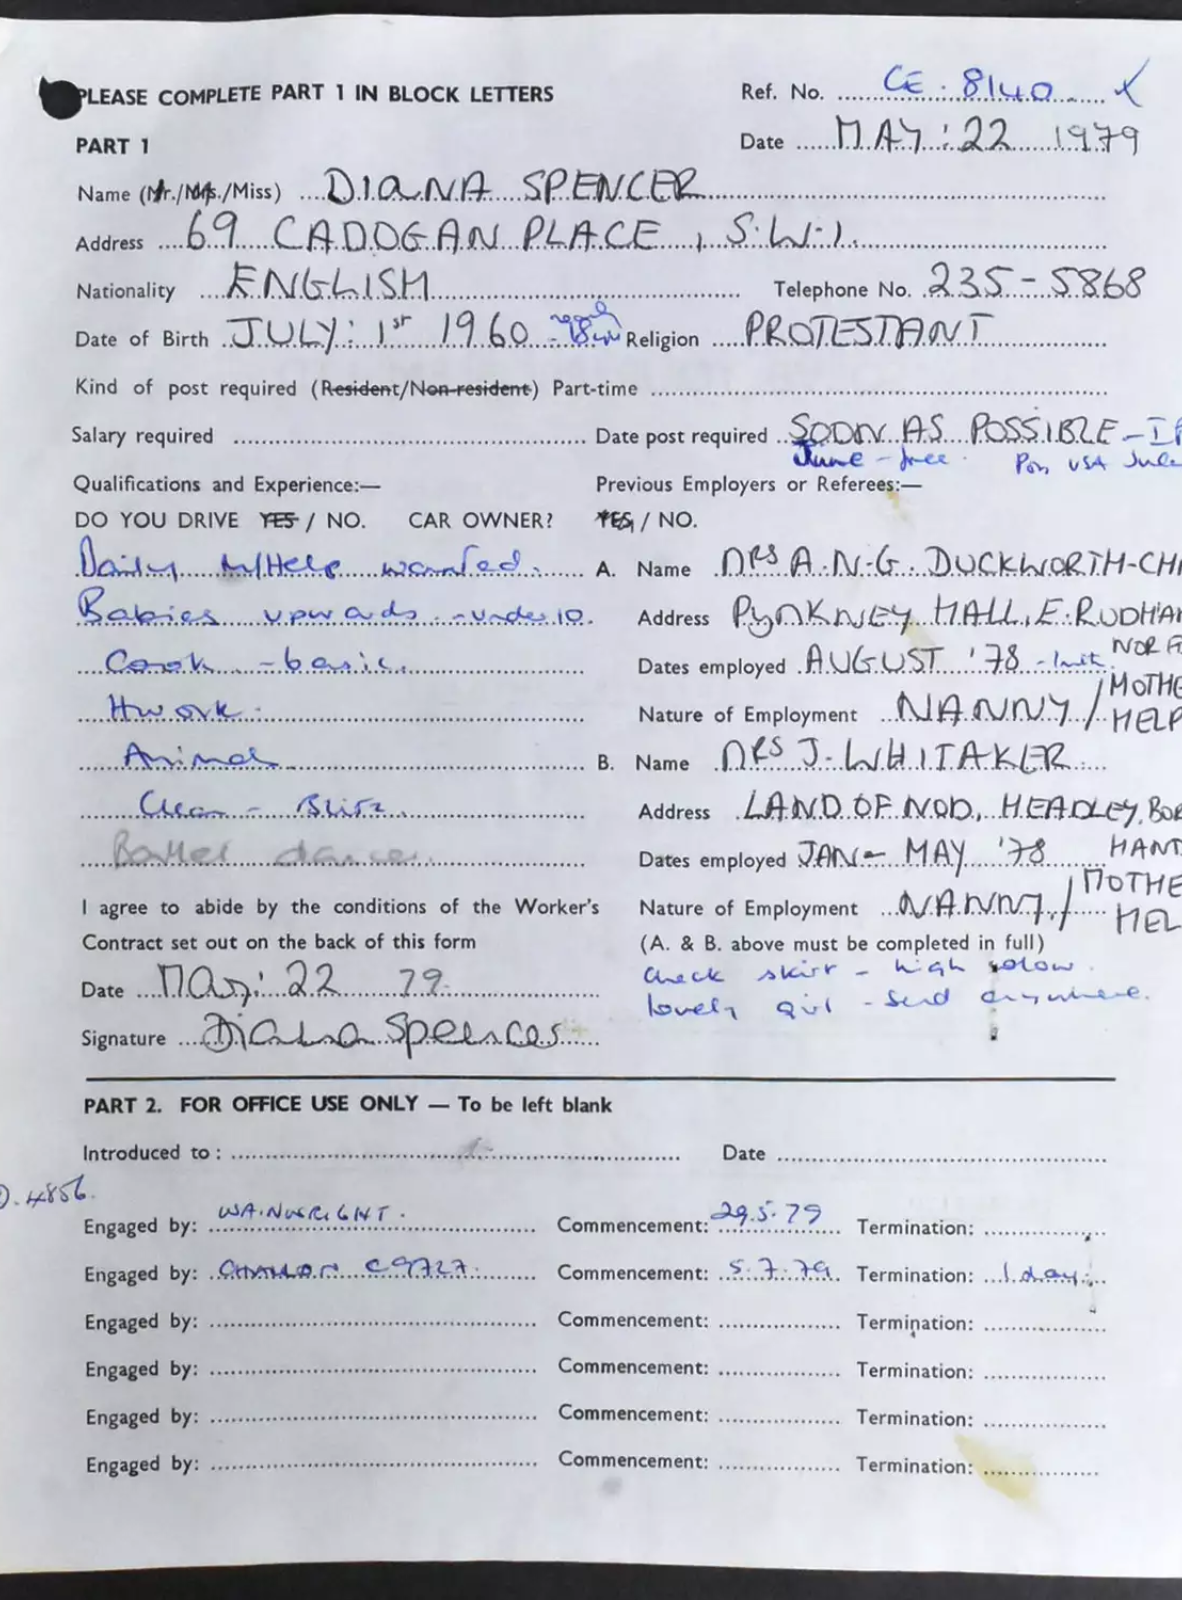 PLEASE COMPLETE PART 1 IN BLOCK LETTERS
Ref. No. CE. 8140
PART 1
Date MAY: 22 1979
Name (Mr./Mrs./Miss) DIANA SPENCER
Address 69 CADOGAN PLACE, S.W.1.
Nationality ENGLISH Telephone No. 235-5868
Date of Birth JULY: 1st 1960 - Religion PROTESTANT
Kind of post required (Resident/Non-resident) Part-time
Salary required Date post required SOON AS POSSIBLE -
June - free. USA
Qualifications and Experience:— Previous Employers or Referees:—
DO YOU DRIVE YES / NO. CAR OWNER? YES / NO.
Daily M/Help wanted. A. Name MRS A.N.G. DUCKWORTH-CH
Babies upwards - under 10. Address PYNKNEY HALL, E. RUDHA
NORF
Cook - basic. Dates employed AUGUST '78
Hwork. Nature of Employment NANNY / MOTHE
HELP
Animal B. Name MRS J. WHITAKER
Clean - Blitz. Address LAND OF NOD, HEADLEY, BOR
HANT
Ballet dance. Dates employed JAN - MAY '78
I agree to abide by the conditions of the Worker's Nature of Employment NANNY / MOTHE
HEL
Contract set out on the back of this form (A. & B. above must be completed in full)
check skirt - high
Date May: 22 79
lovely girl - send anywhere.
Signature Diana Spencer
PART 2. FOR OFFICE USE ONLY — To be left blank
Introduced to: Date
4856.
Engaged by: WAINWRIGHT. Commencement: 29.5.79 Termination:
Engaged by: C9727. Commencement: 5.7.79. Termination: 1 day.
Engaged by: Commencement: Termination:
Engaged by: Commencement: Termination:
Engaged by: Commencement: Termination:
Engaged by: Commencement: Termination: